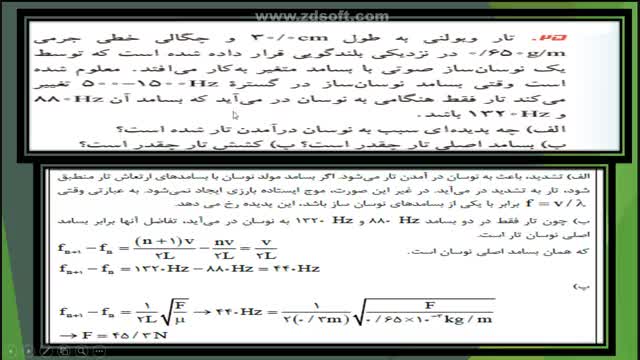 www.zdsoft.com
۲۵. تار ویولنی به طول ۳۰/۰cm و چگالی خطی جرمی
۰/۶۵۰g/m در نزدیکی بلندگویی قرار داده شده است که توسط
یک نوسان‌ساز صوتی با بسامد متغیر به‌کار می‌افتد. معلوم شده
است وقتی بسامد نوسان‌ساز در گسترهٔ ۵۰۰-۱۵۰۰Hz تغییر
می‌کند تار فقط هنگامی به نوسان در می‌آید که بسامد آن ۸۸۰Hz
و ۱۳۲۰Hz باشد.
الف) چه پدیده‌ای سبب به نوسان درآمدن تار شده است؟
ب) بسامد اصلی تار چقدر است؟ پ) کشش تار چقدر است؟
الف) تشدید، باعث به نوسان در آمدن تار می‌شود. اگر بسامد مولد نوسان با بسامدهای ارتعاش تار منطبق
شود، تار به تشدید در می‌آید. در غیر این صورت، موج ایستاده بارزی ایجاد نمی‌شود. به عبارتی وقتی
f = v/λ برابر با یکی از بسامدهای نوسان ساز باشد، این پدیده رخ می دهد.
ب) چون تار فقط در دو بسامد ۸۸۰ Hz و ۱۳۲۰ Hz به نوسان در می‌آید، تفاضل آنها برابر بسامد
اصلی نوسان تار است.
fₙ₊₁ − fₙ = (n+۱)v/۲L − nv/۲L = v/۲L
که همان بسامد اصلی نوسان است.
fₙ₊₁ − fₙ = ۱۳۲۰Hz − ۸۸۰Hz = ۴۴۰Hz
پ)
fₙ₊₁ − fₙ = ۱/۲L √(F/μ) → ۴۴۰Hz = ۱/۲(۰/۳m) √(F/۰/۶۵×۱۰⁻³kg/m)
→ F = ۴۵/۳N